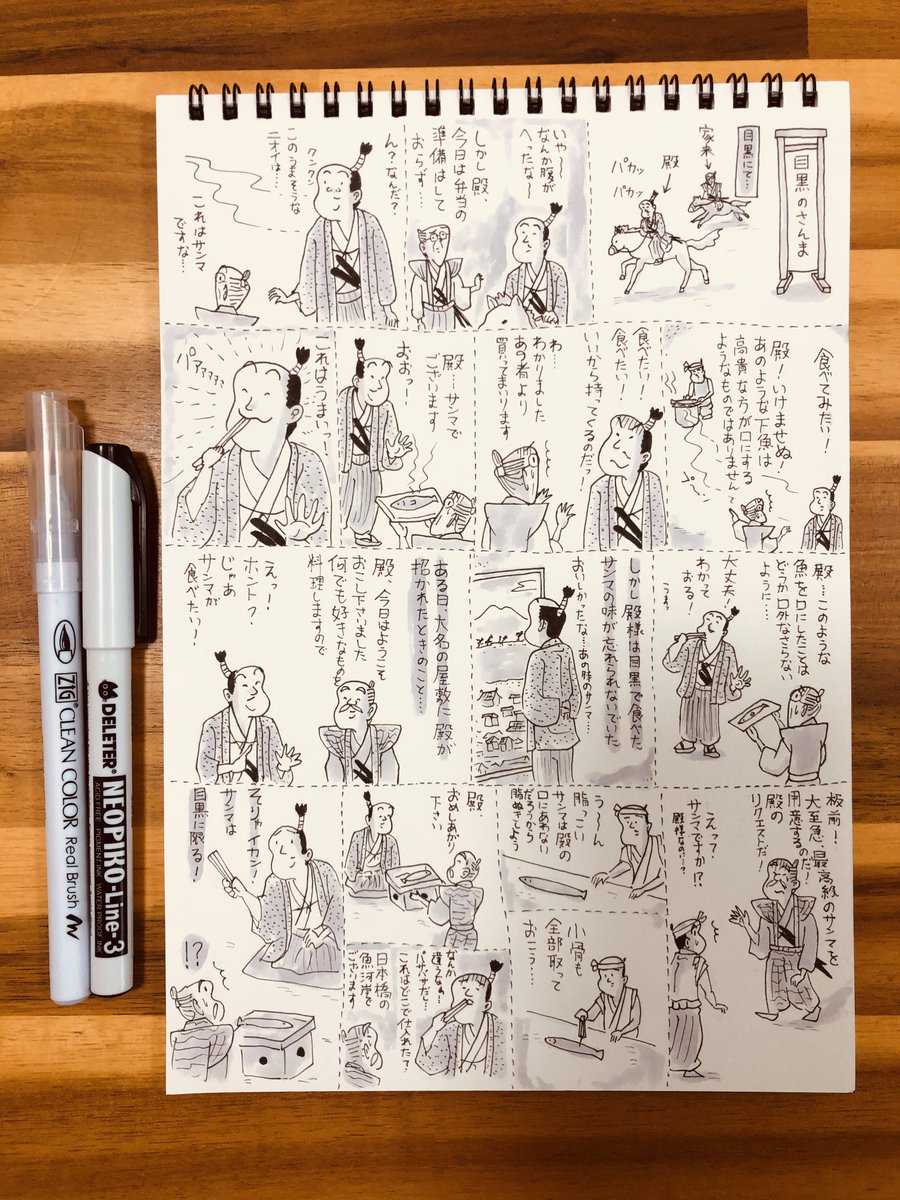 目黒のさんま
目黒にて…
家来
殿
パカッ
パカッ
いや〜
なんか腹が
へったな〜
しかし殿、
今日は弁当の
準備はして
おらず…
ん？なんだ？
クンクン
このうまそうな
ニオイは……
これはサンマ
ですな…
食べてみたい！
殿！いけませぬ！
あのような下魚は
高貴な方が口にする
ようなものではありません
食べたい！
食べたい！
いいから持ってくるのだっ！
わ…
わかりました
あの者より
買ってまいります
殿…サンマで
ございます
おおっー
これはうまいっー
パアァァァ
殿…このような
魚を口にしたことは
どうか口外なさらない
ように…
大丈夫！
わかって
おる！
うまっ
しかし殿様は目黒で食べた
サンマの味が忘れられないでいた
おいしかったな〜あの時のサンマ…
ある日、大名の屋敷に殿が
招かれたときのこと…
殿、今日はようこそ
おこし下さいました
何でも好きなものを
料理しますので
えっ！
ホント？
じゃあ
サンマが
食べたい！
板前！
大至急、最高級のサンマを
用意するのだ！
殿の
リクエストだ！
えっ？
サンマですか!?
殿様なのに…？
う〜ん
脂っこい
サンマは殿の
口にあわない
だろうから
脂ぬきしよう
小骨も
全部取って
おこう…
殿、
おめしあがり
下さい
なんか
違うなぁ…
パサパサだし…
これはどこで仕入れた？
日本橋の
魚河岸で
ございます
そりゃイカン！
サンマは
目黒に限る！
!?
ZIG CLEAN COLOR Real Brush
DELETER NEOPIKO-Line-3
ACID FREE PIGMENT INK WATER PROOF INK